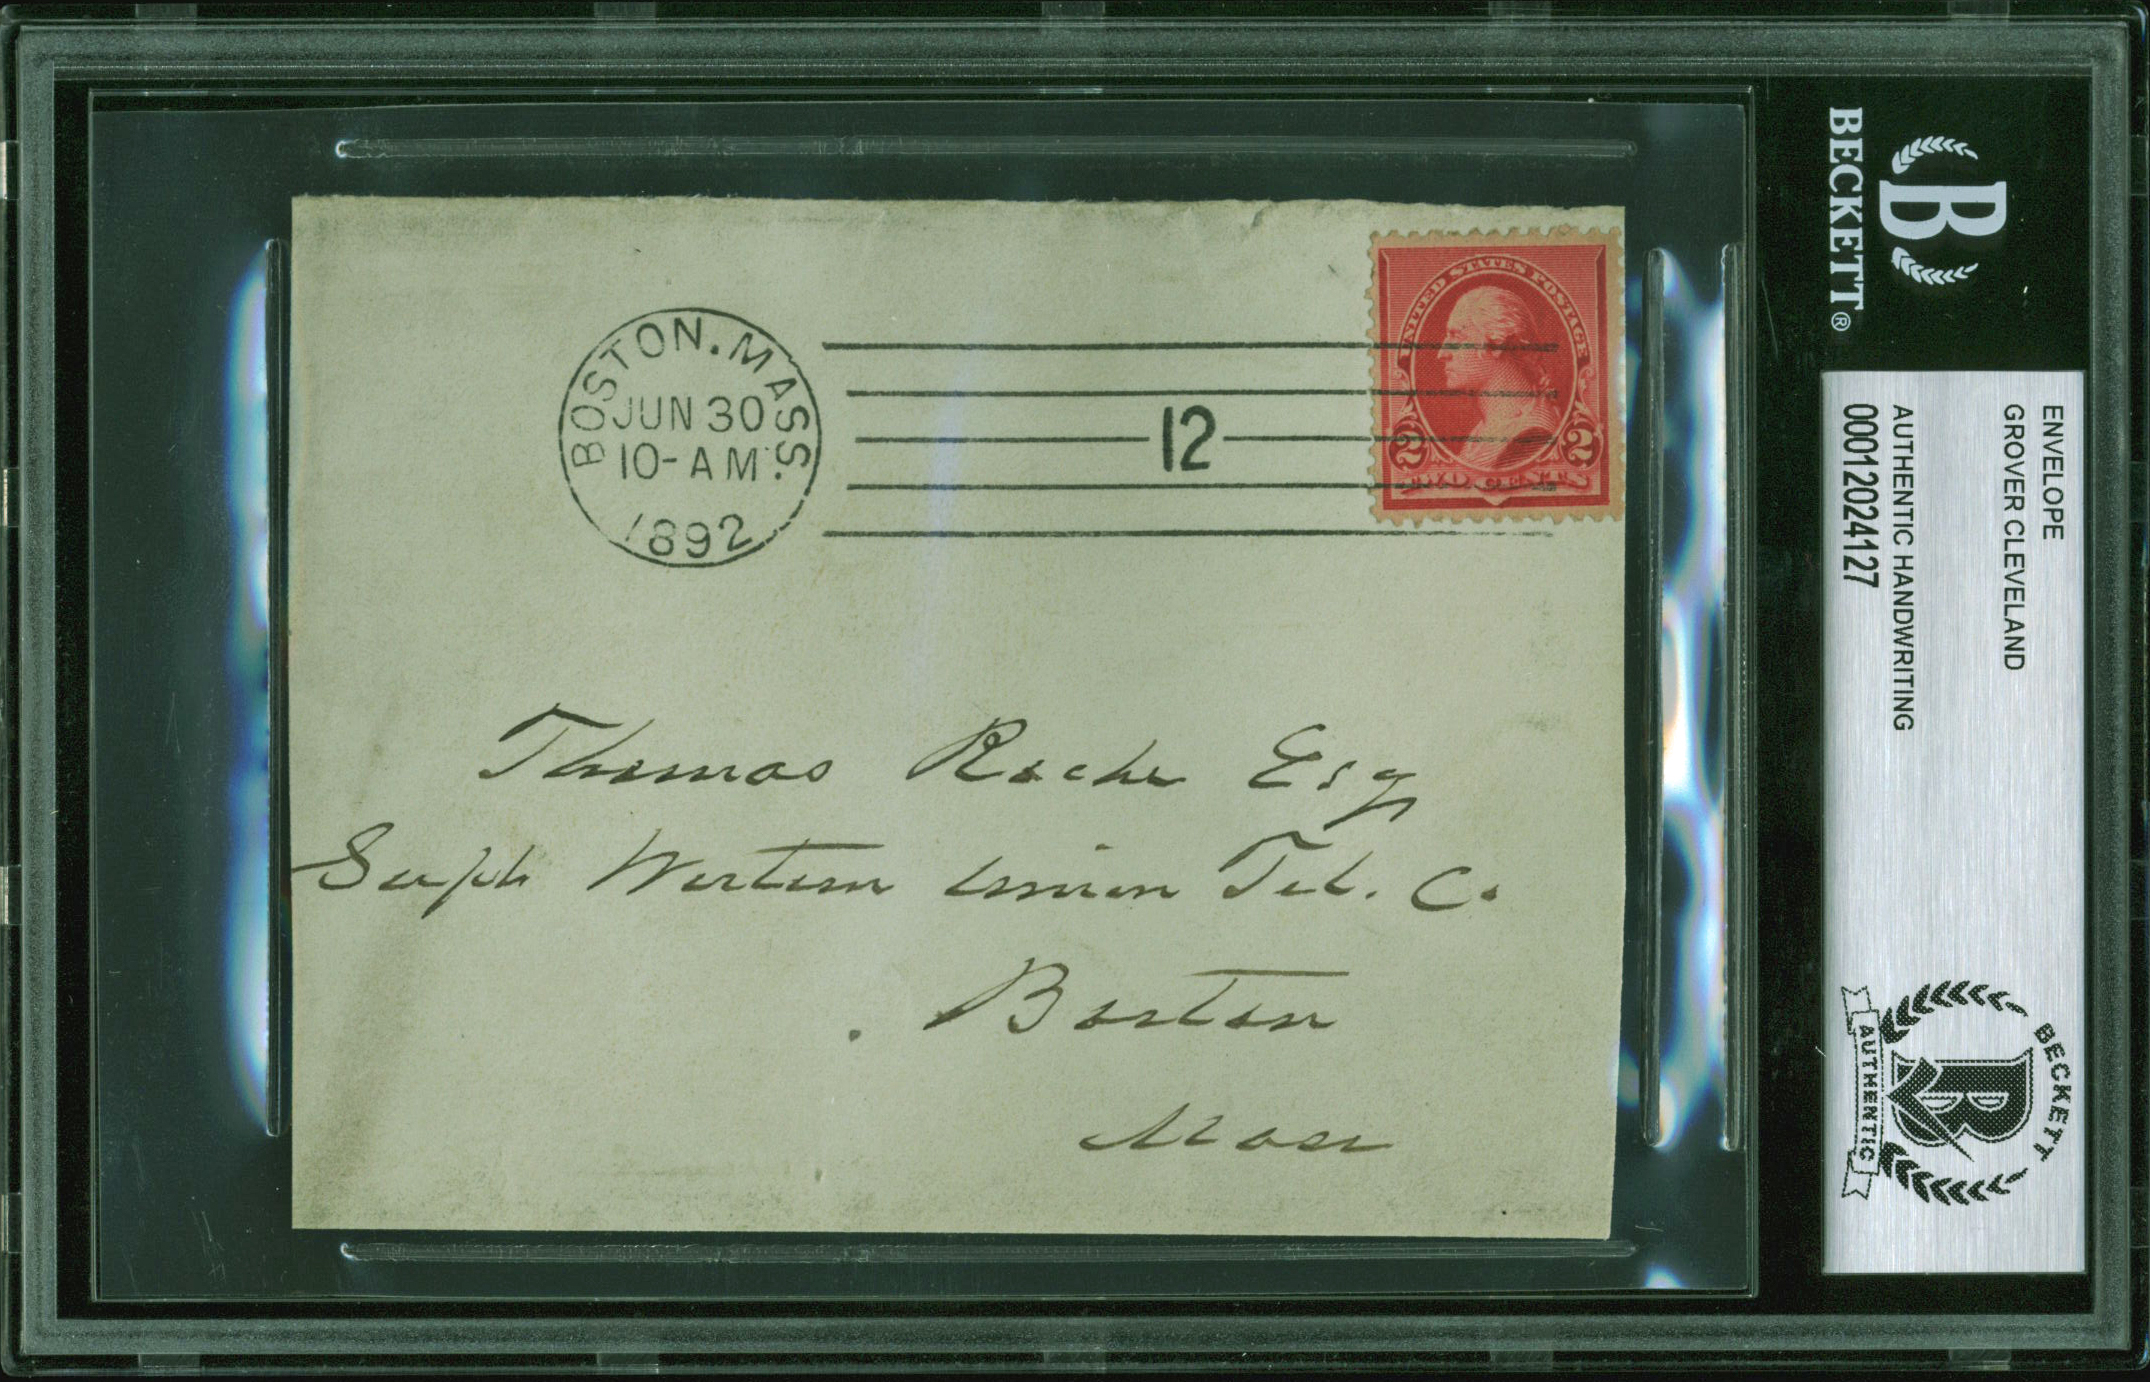 BOSTON. MASS.
JUN 30
10-AM
1892
12
UNITED STATES POSTAGE
2 2
TWO CENTS
Thomas Roche Esq
Supt Western Union Tel. Co
Boston
Mass
BECKETT®
B
ENVELOPE
GROVER CLEVELAND
AUTHENTIC HANDWRITING
00012024127
BECKETT
B
AUTHENTIC